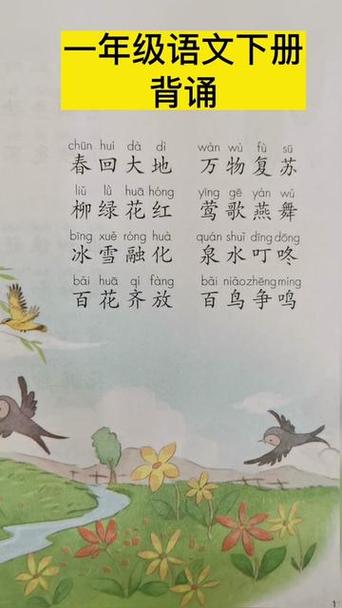 一年级语文下册
背诵
chūn huí dà dì wàn wù fù sū
春回大地 万物复苏
liǔ lǜ huā hóng yīng gē yàn wǔ
柳绿花红 莺歌燕舞
bīng xuě róng huà quán shuǐ dīng dōng
冰雪融化 泉水叮咚
bǎi huā qí fàng bǎi niǎo zhēng míng
百花齐放 百鸟争鸣